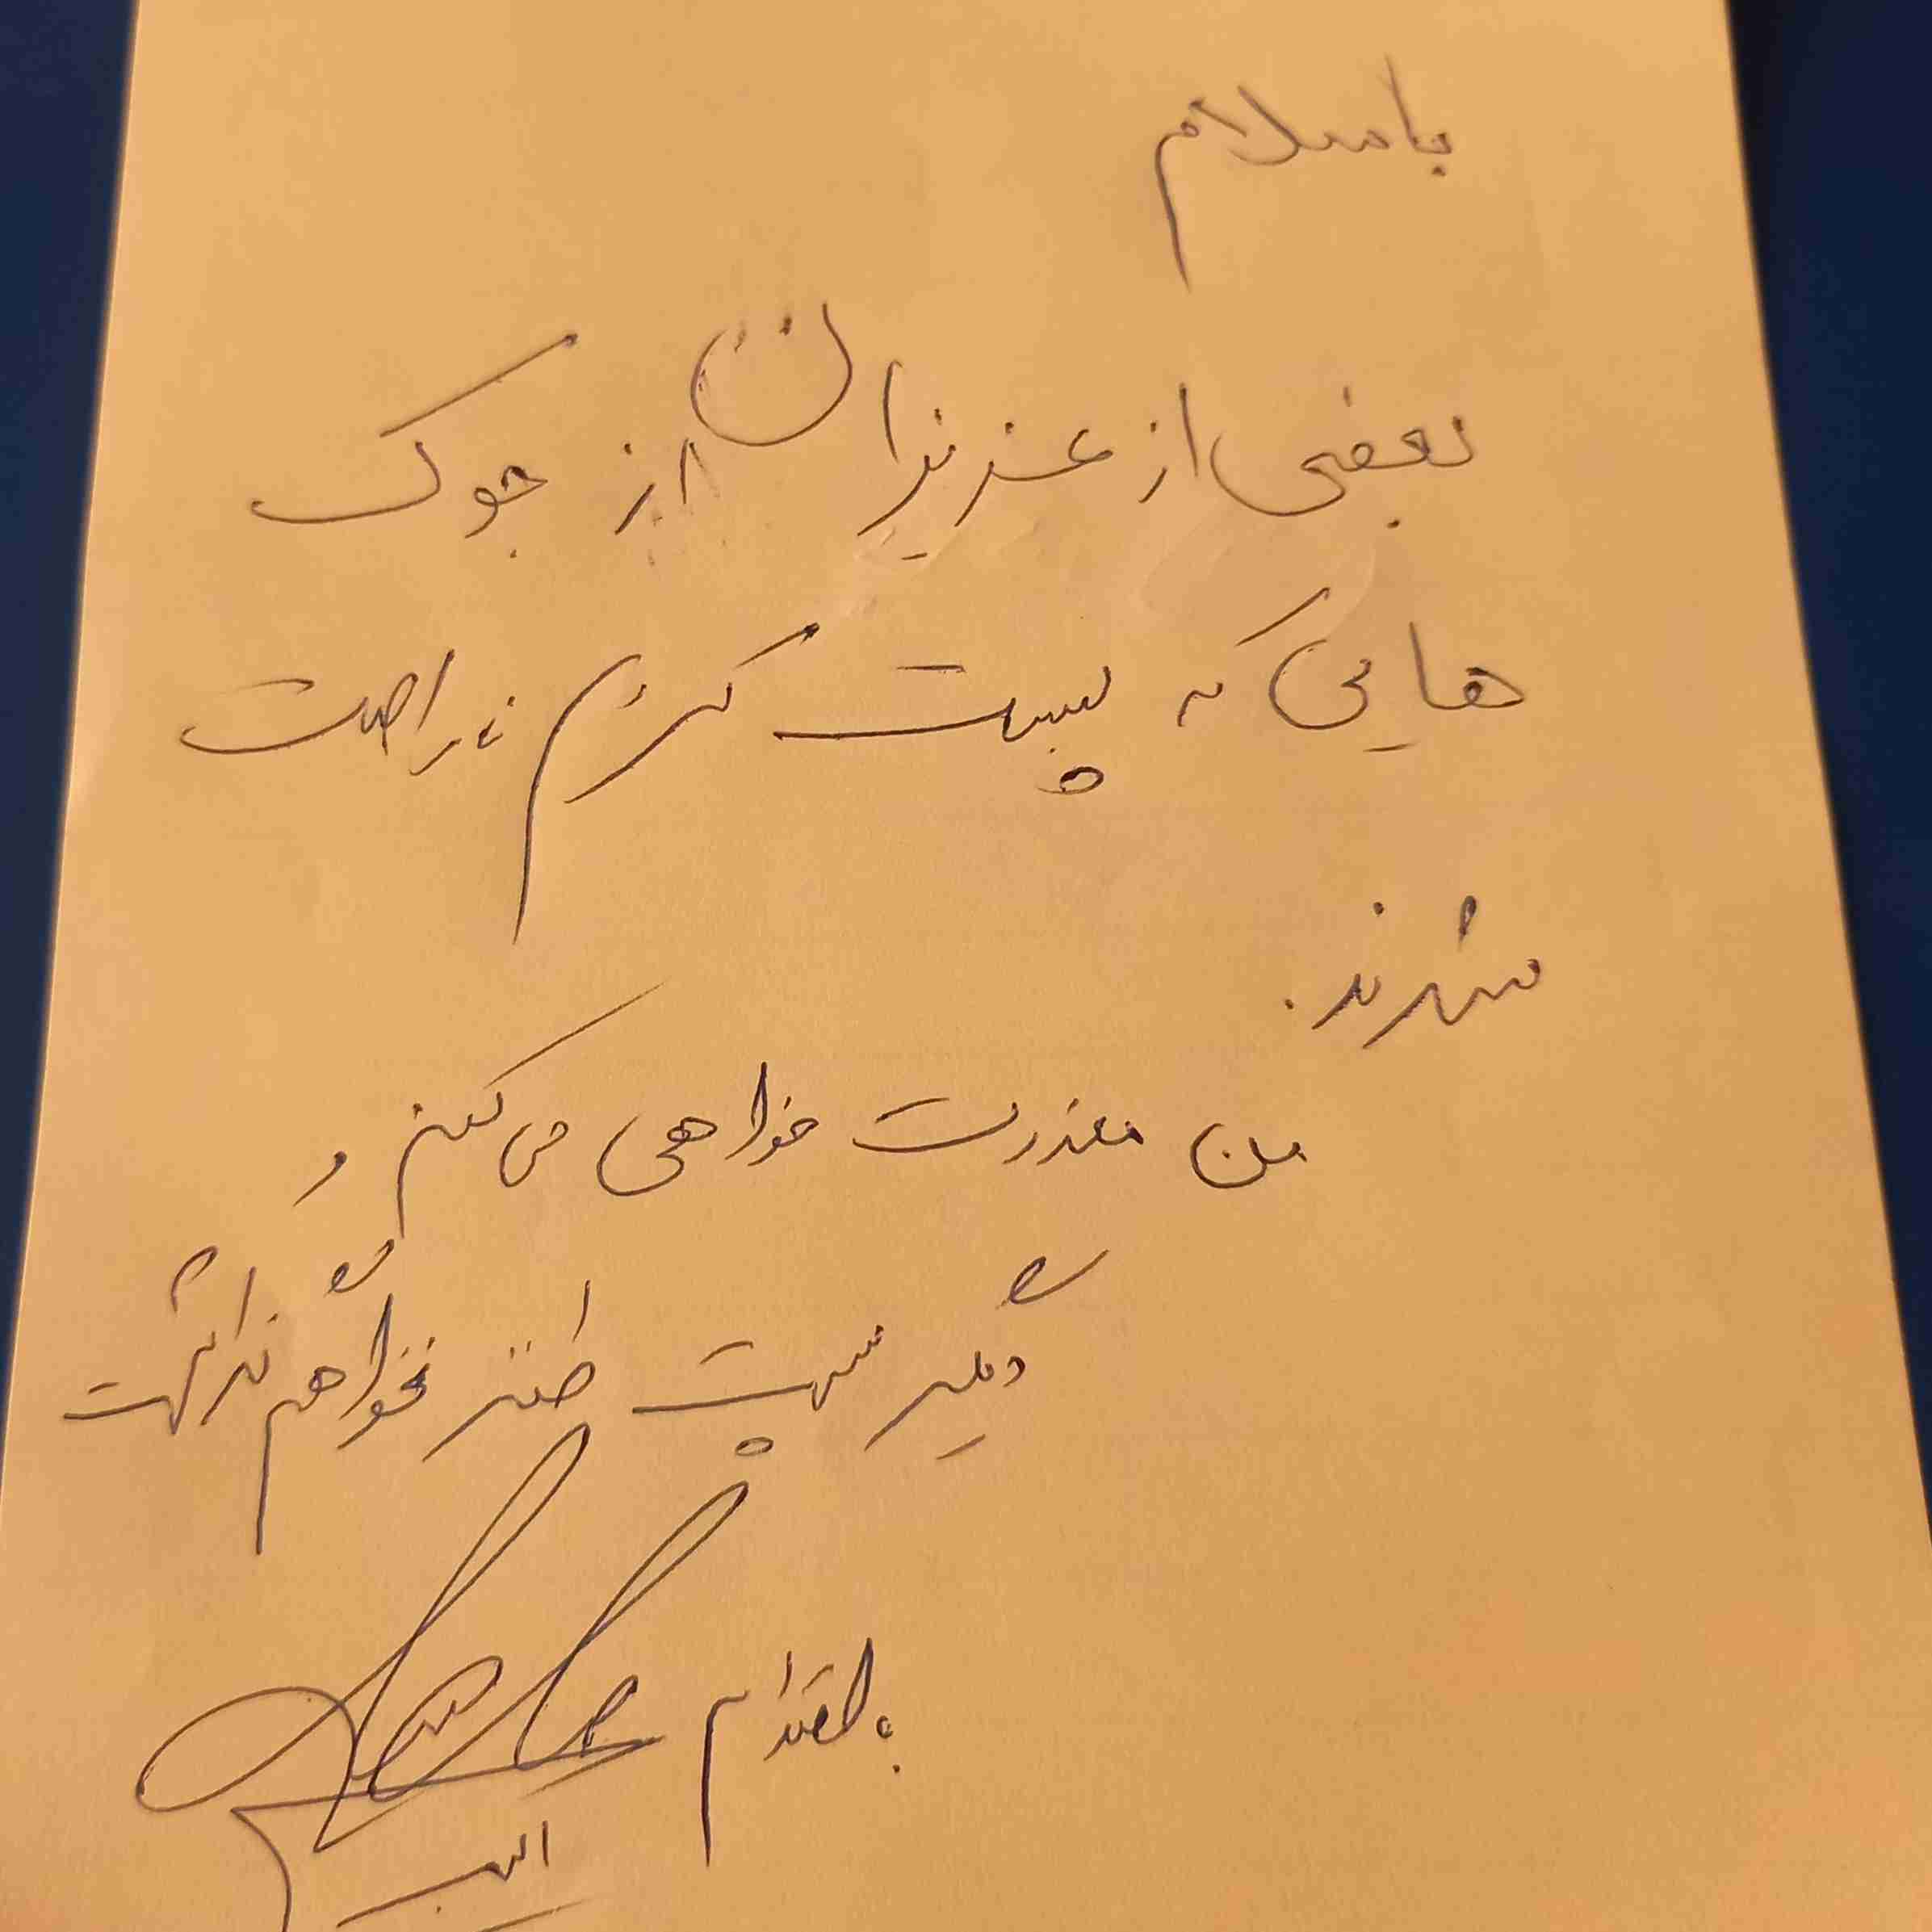 با سلام
بعضی از عزیزان از جوک
هایی که پست کردم ناراحت
شدند.
من معذرت خواهی می کنم و
دیگر پست طنز نخواهم گذاشت
با احترام